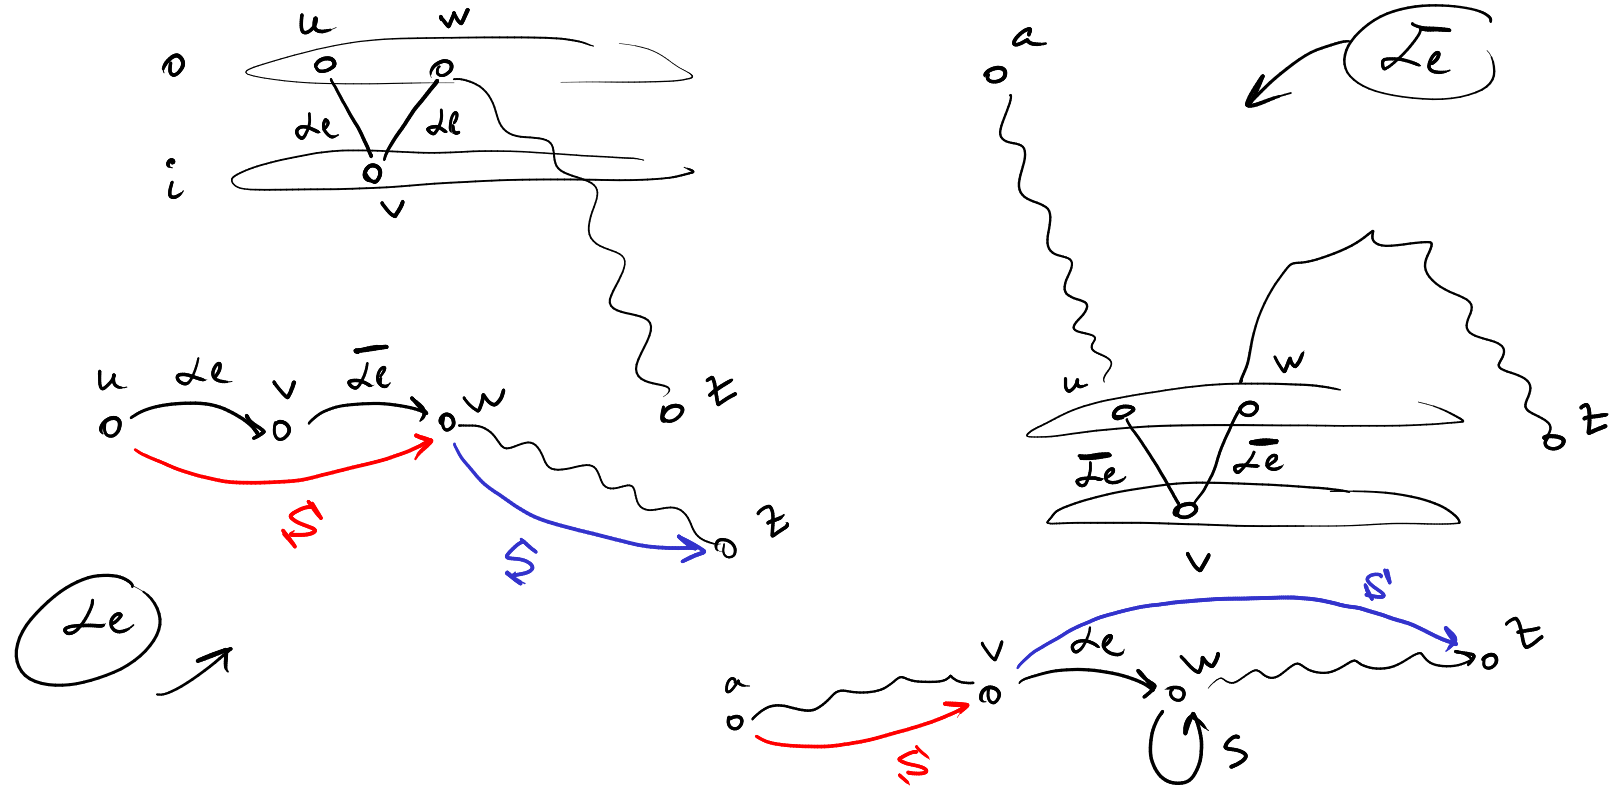 u w
o
Le Le
i
v
z
u Le v L̅e̅ w
S
S
z
Le
a
L̅e̅
u w
z
L̅e̅ L̅e̅
v
S
a v Le w z
S
S